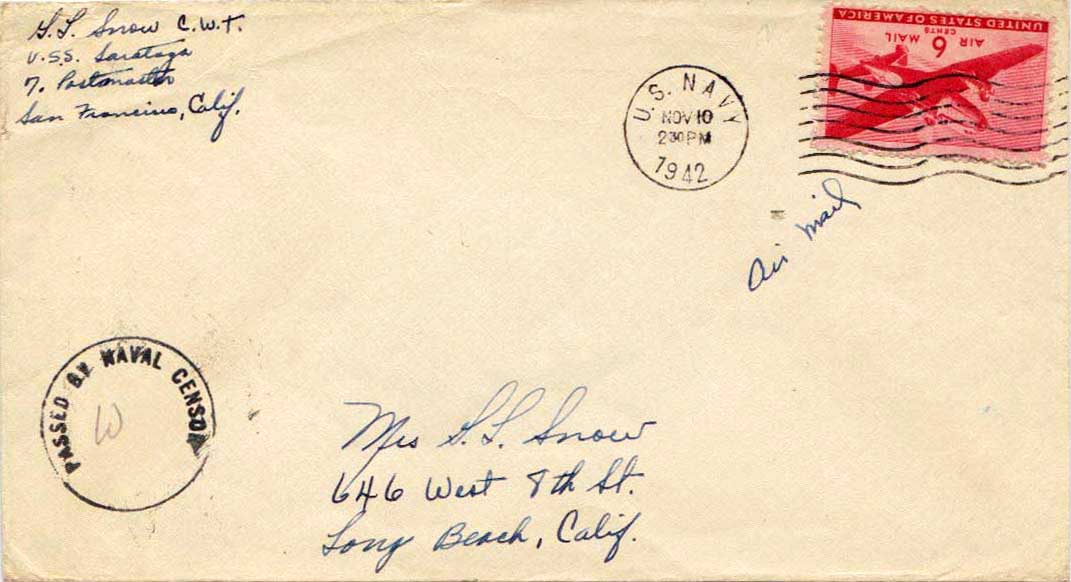 S. L. Snow C.W.T.
U.S.S. Saratoga
% Postmaster
San Francisco, Calif.
U.S. NAVY
NOV 10
2 30 PM
1942
UNITED STATES OF AMERICA
6 CENTS
AIR MAIL
Air Mail
PASSED BY NAVAL CENSOR
W
Mrs S. L. Snow
646 West 8th St.
Long Beach, Calif.